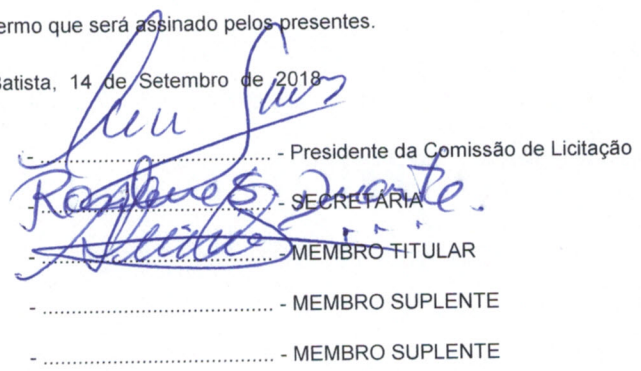 ermo que será assinado pelos presentes.
Batista, 14 de Setembro de 2018
- ........................................ - Presidente da Comissão de Licitação
- ........................................ - SECRETÁRIA
- ........................................ - MEMBRO TITULAR
- ........................................ - MEMBRO SUPLENTE
- ........................................ - MEMBRO SUPLENTE